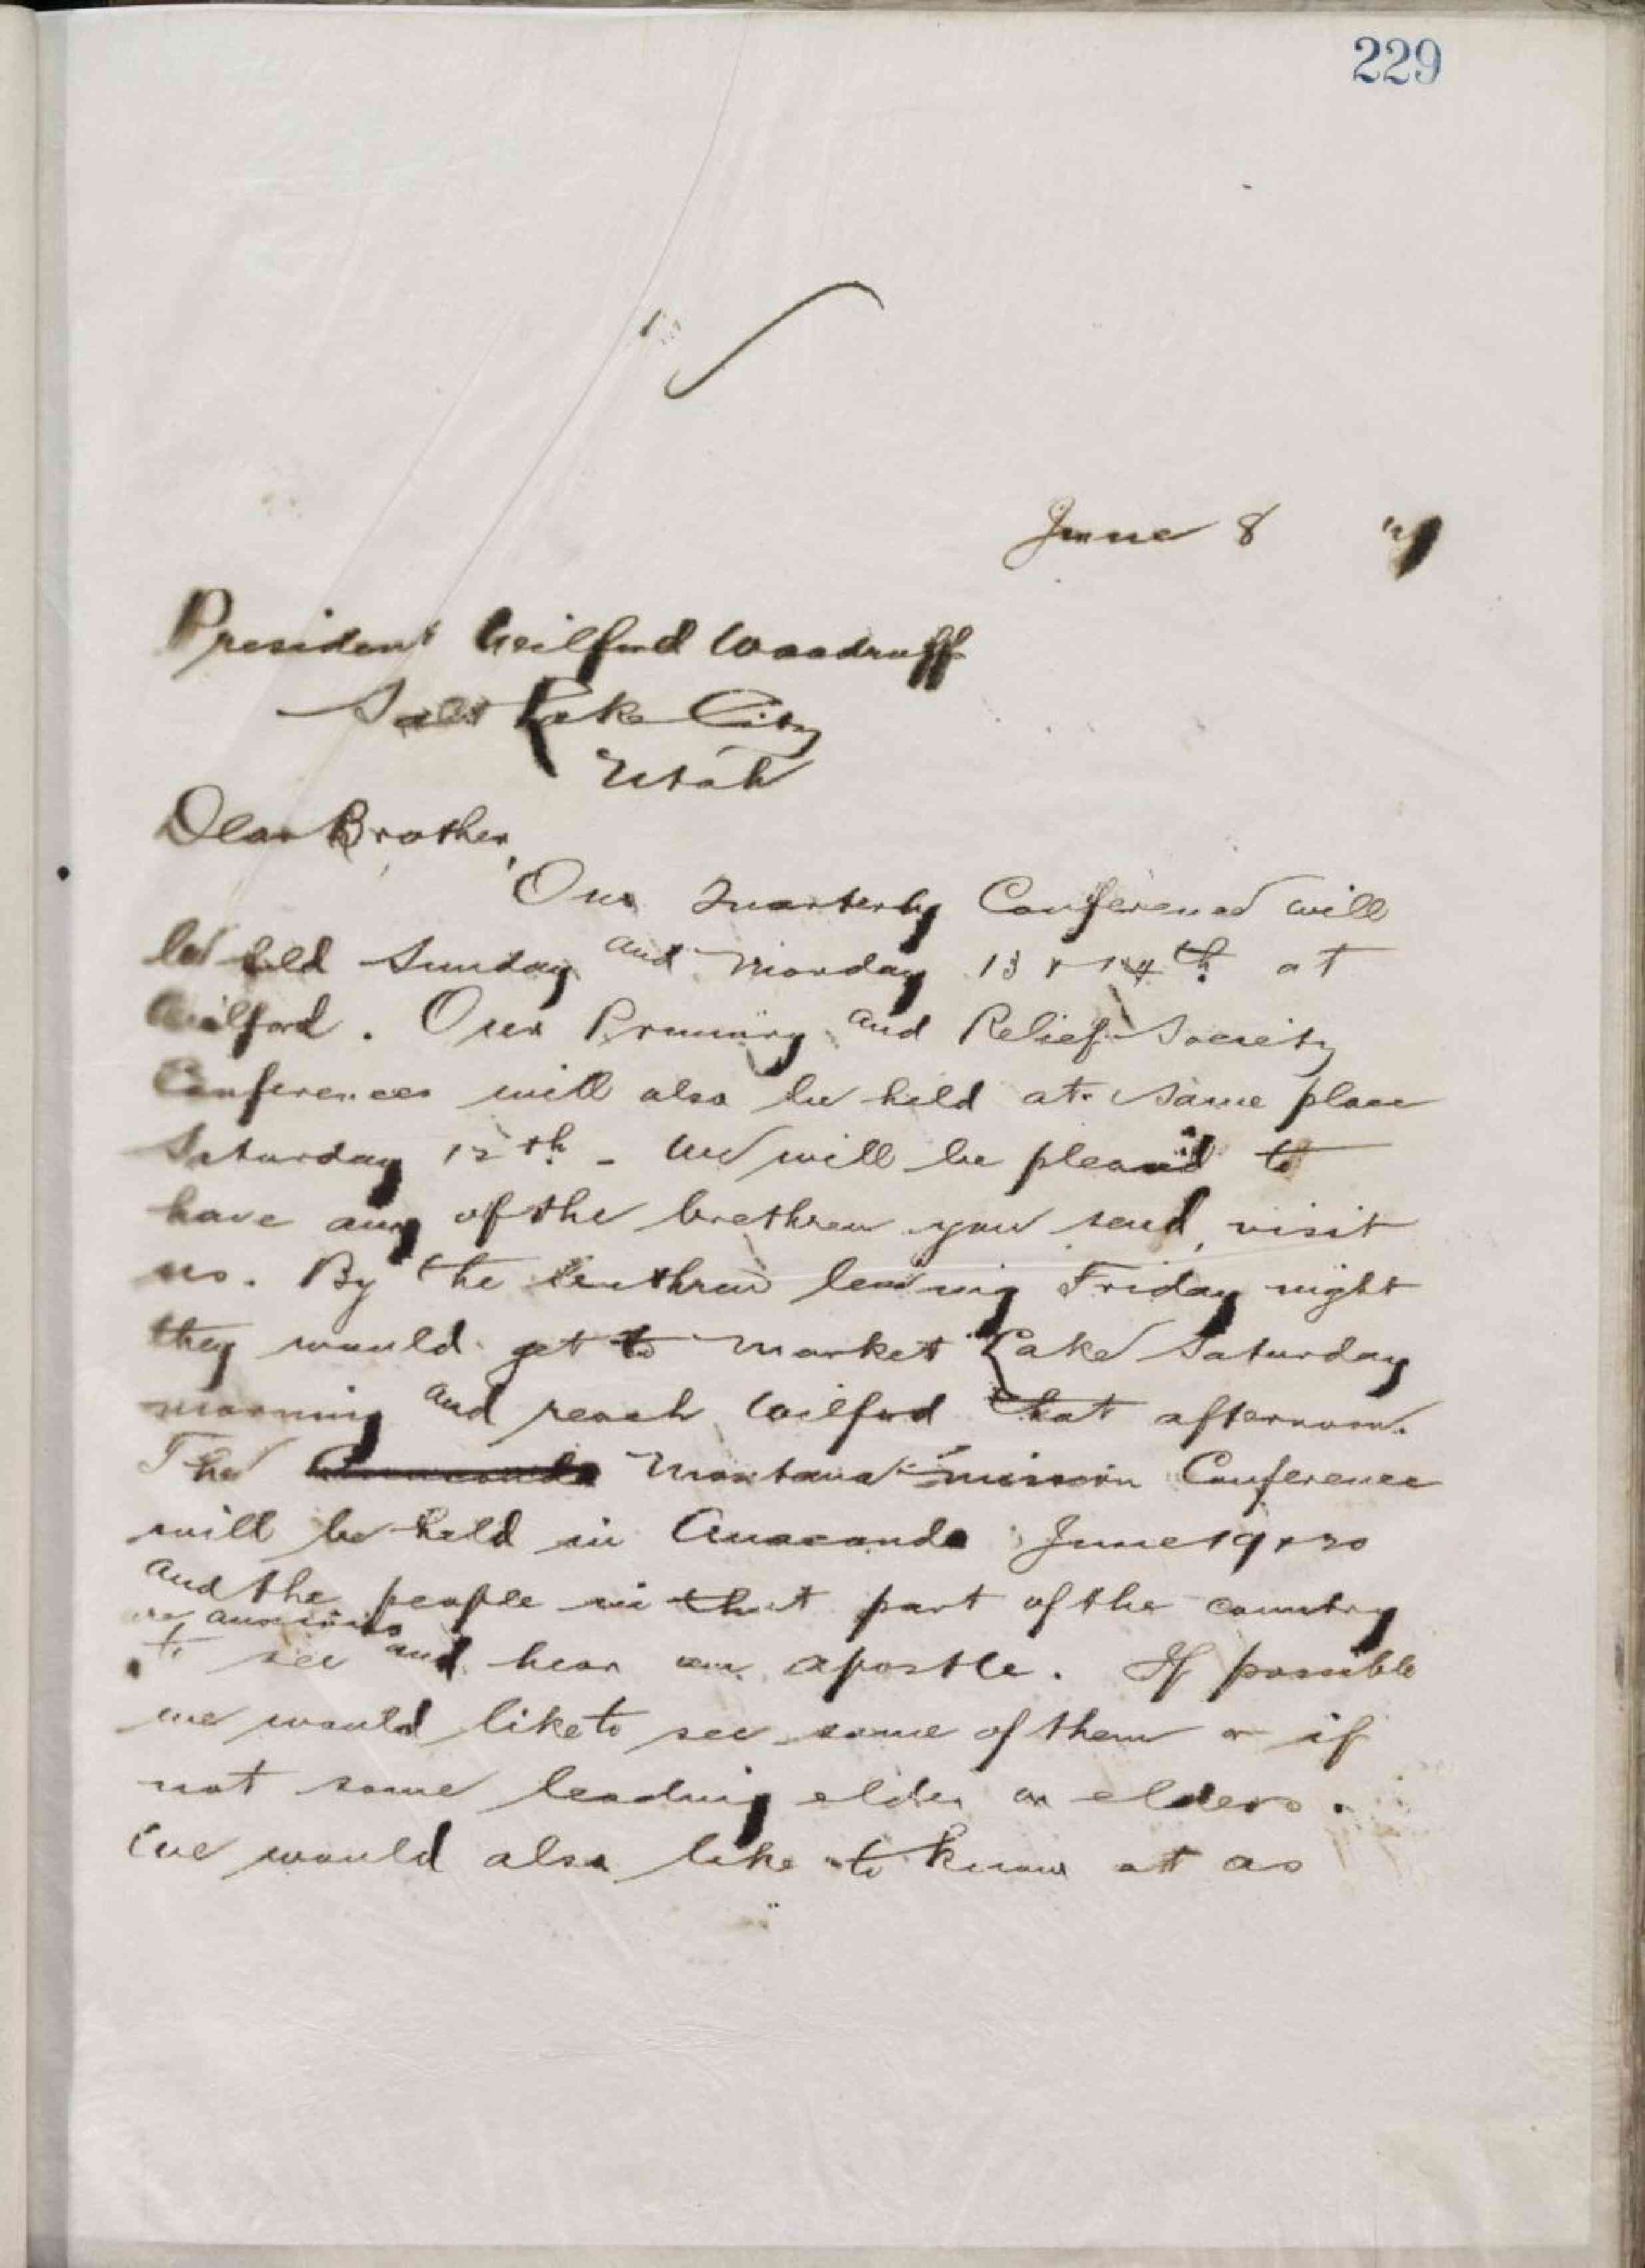 229
June 8
President Wilford Woodruff
Salt Lake City
Utah
Dear Brother,
Our Quarterly Conference will
be held Sunday and Monday 13 & 14th at
Wilford. Our Primary and Relief Society
Conferences will also be held at same place
Saturday 12th - We will be pleased to
have any of the brethren you send, visit
us. By the brethren leaving Friday night
they would get to Market Lake Saturday
morning and reach Wilford that afternoon.
The Anaconda Montana Mission Conference
will be held in Anaconda June 19 & 20
and the people in that part of the country
are anxious
to see and hear an apostle. If possible
we would like to see some of them or if
not some leading elder or elders.
We would also like to know at as